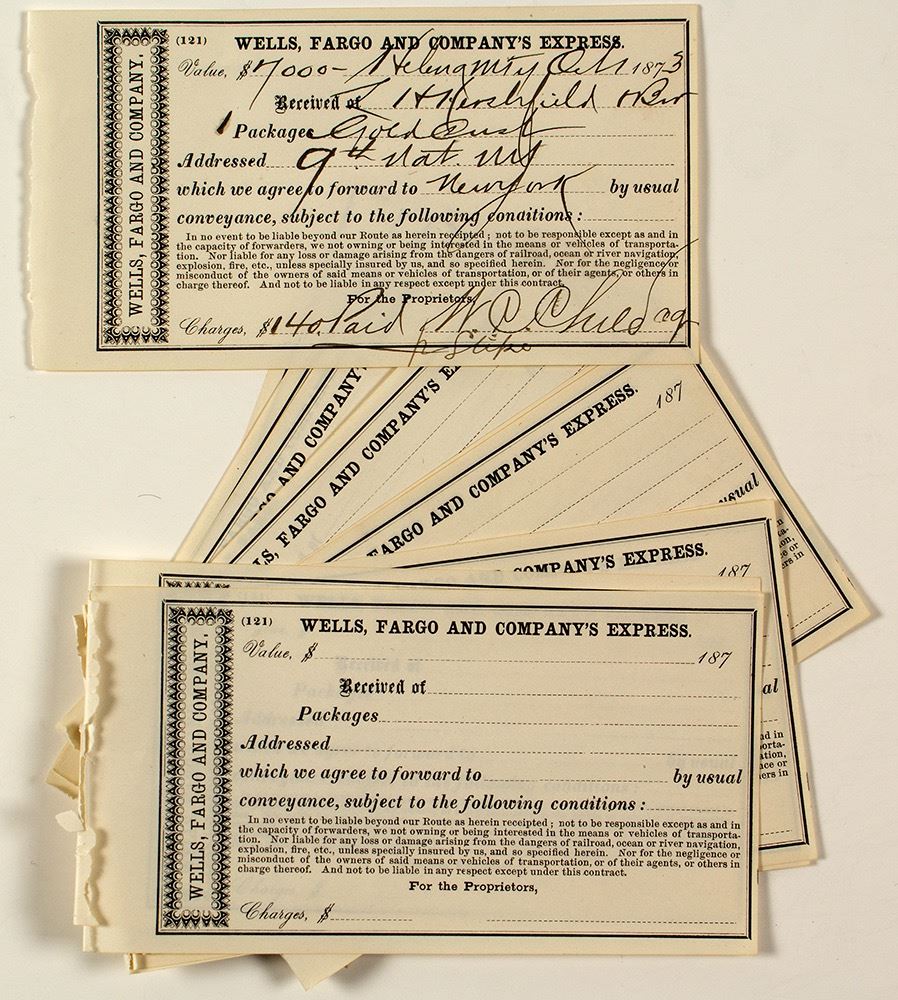 WELLS, FARGO AND COMPANY.
(121) WELLS, FARGO AND COMPANY'S EXPRESS.
Value, $7000- Helena 1873
Received of L H Hershfield & Bro
1 Packages Gold Dust
Addressed 9th Nat.
which we agree to forward to New York by usual
conveyance, subject to the following conditions:
In no event to be liable beyond our Route as herein receipted; not to be responsible except as and in
the capacity of forwarders, we not owning or being interested in the means or vehicles of transporta-
tion. Nor liable for any loss or damage arising from the dangers of railroad, ocean or river navigation,
explosion, fire, etc., unless specially insured by us, and so specified herein. Nor for the negligence or
misconduct of the owners of said means or vehicles of transportation, or of their agents, or others in
charge thereof. And not to be liable in any respect except under this contract.
For the Proprietors,
Charges, $140. Paid W. C. Child ag
AND COMPANY'
S, FARGO AND COMPANY'S E
FARGO AND COMPANY'S EXPRESS.
187
usual
OMPANY'S EXPRESS.
187
al
WELLS, FARGO AND COMPANY.
(121) WELLS, FARGO AND COMPANY'S EXPRESS.
Value, $ 187
Received of
Packages
Addressed
which we agree to forward to by usual
conveyance, subject to the following conditions:
In no event to be liable beyond our Route as herein receipted; not to be responsible except as and in
the capacity of forwarders, we not owning or being interested in the means or vehicles of transporta-
tion. Nor liable for any loss or damage arising from the dangers of railroad, ocean or river navigation,
explosion, fire, etc., unless specially insured by us, and so specified herein. Nor for the negligence or
misconduct of the owners of said means or vehicles of transportation, or of their agents, or others in
charge thereof. And not to be liable in any respect except under this contract.
For the Proprietors,
Charges, $